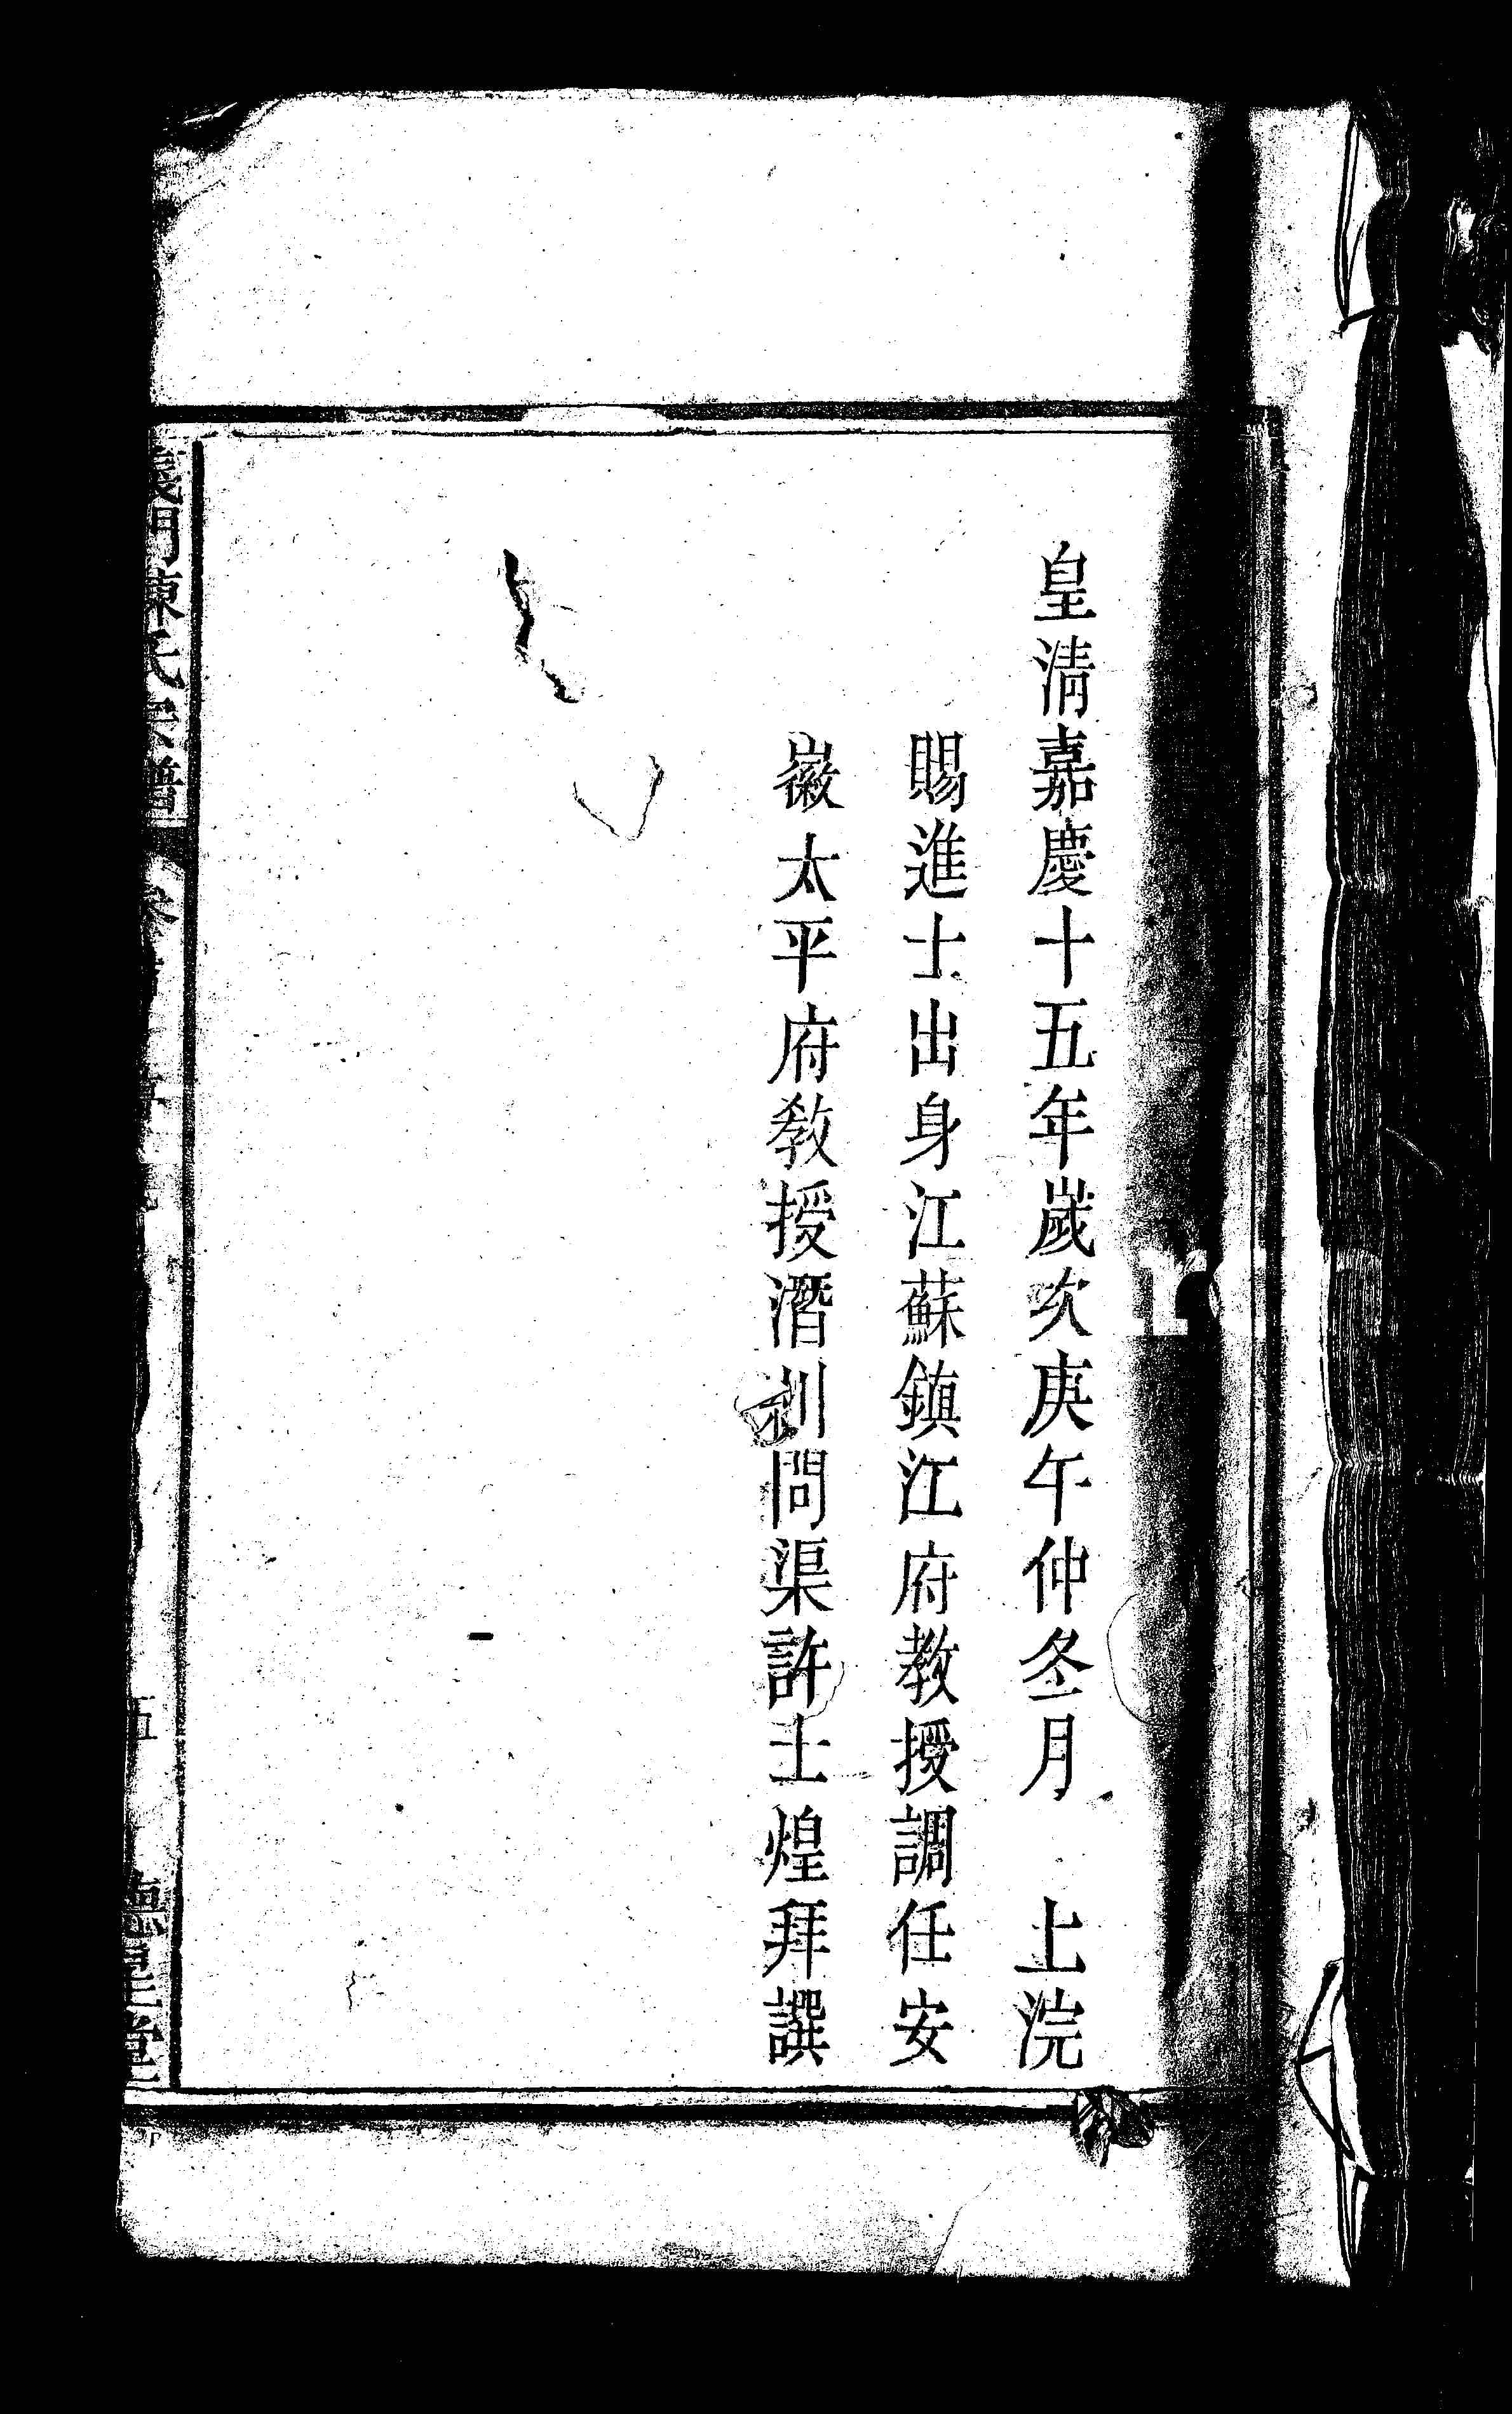 皇清嘉慶十五年歲次庚午仲冬月　上浣
賜進士出身江蘇鎮江府教授調任安
徽太平府教授潛川問渠許士煌拜譔
義門陳氏宗譜
五
德星堂